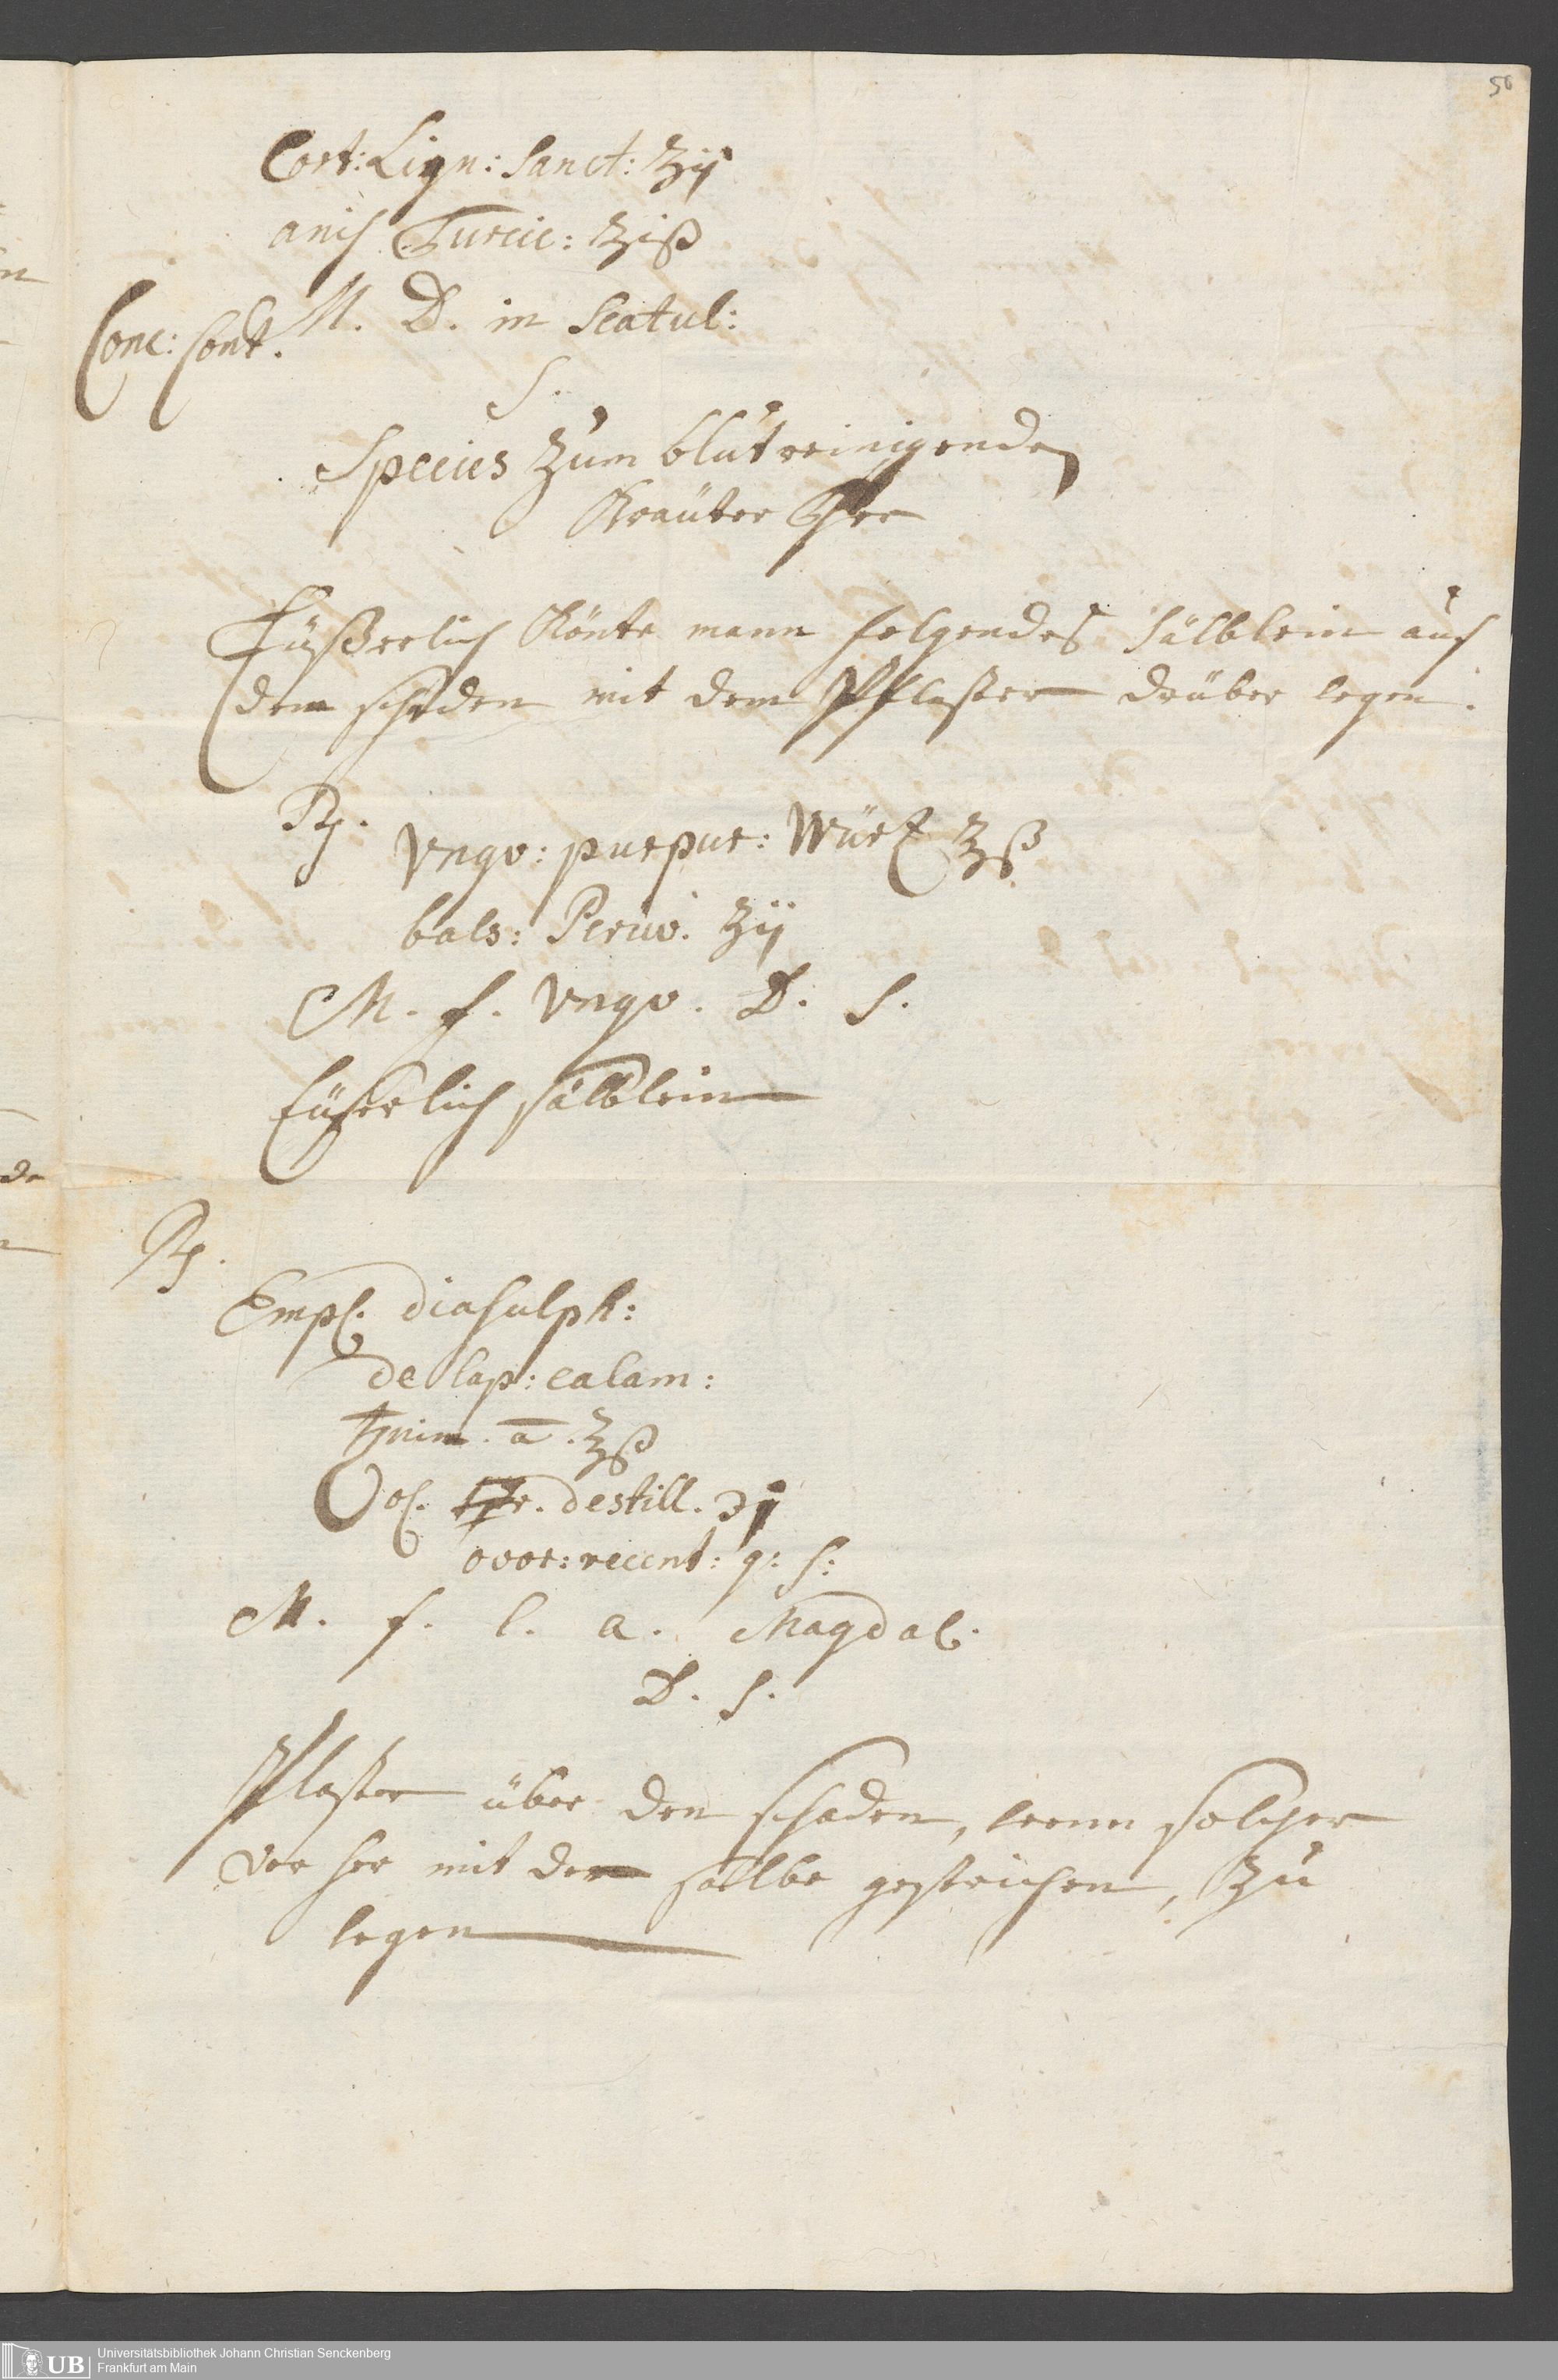 50
Cort: Lign: Sanct: ʒij
anis Turcic: ʒiß
Conc: Cont. M. D. in Scatul:
S.
Species zum blutreinigenden
Kräuter Thee
Eüßerlich könte mann folgendes Sälblein auf
den schaden mit dem Pflaster drüber legen.
Rp.
Vngv: purpur: Würtz ℥ß
bals: Peruv. ʒij
M. f. Vngv. D. S.
Eüserlich sälblein
Rp.
Empl. diasulph:
de lap: calam:
ana ā. ℥ß
Ol. destill. ℈j
ovor: recent: q: s:
M. f. l. a. Magdal.
D. S.
Pflaster über den schaden, wenn solcher
vor her mit der salbe gestrichen, zu
legen
Universitätsbibliothek Johann Christian Senckenberg
Frankfurt am Main
UB